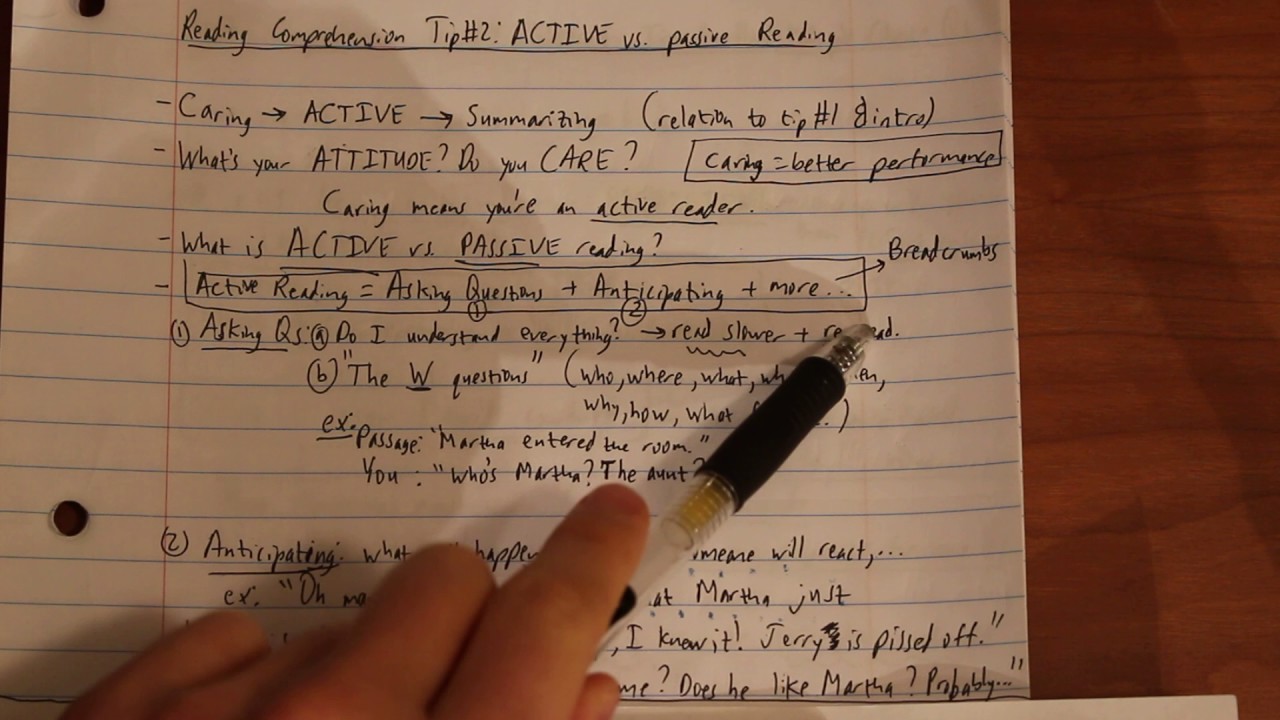 Reading Comprehension Tip #2: ACTIVE vs. passive Reading
- Caring → ACTIVE → Summarizing (relation to tip #1 & intro)
- What's your ATTITUDE? Do you CARE? Caring = better performance
Caring means you're an active reader.
- What is ACTIVE vs. PASSIVE reading?
Breadcrumbs
- Active Reading = Asking Questions + Anticipating + more...
① ②
① Asking Qs: ⓐ Do I understand everything? → read slower +
ⓑ "The W questions" (who, where, what,
why, how, what )
ex: Passage: "Martha entered the room."
You: "Who's Martha? The aunt?
② Anticipating: what will react,...
ex. "Oh Martha just
, I knew it! Jerry is pissed off."
me? Does he like Martha? Probably..."